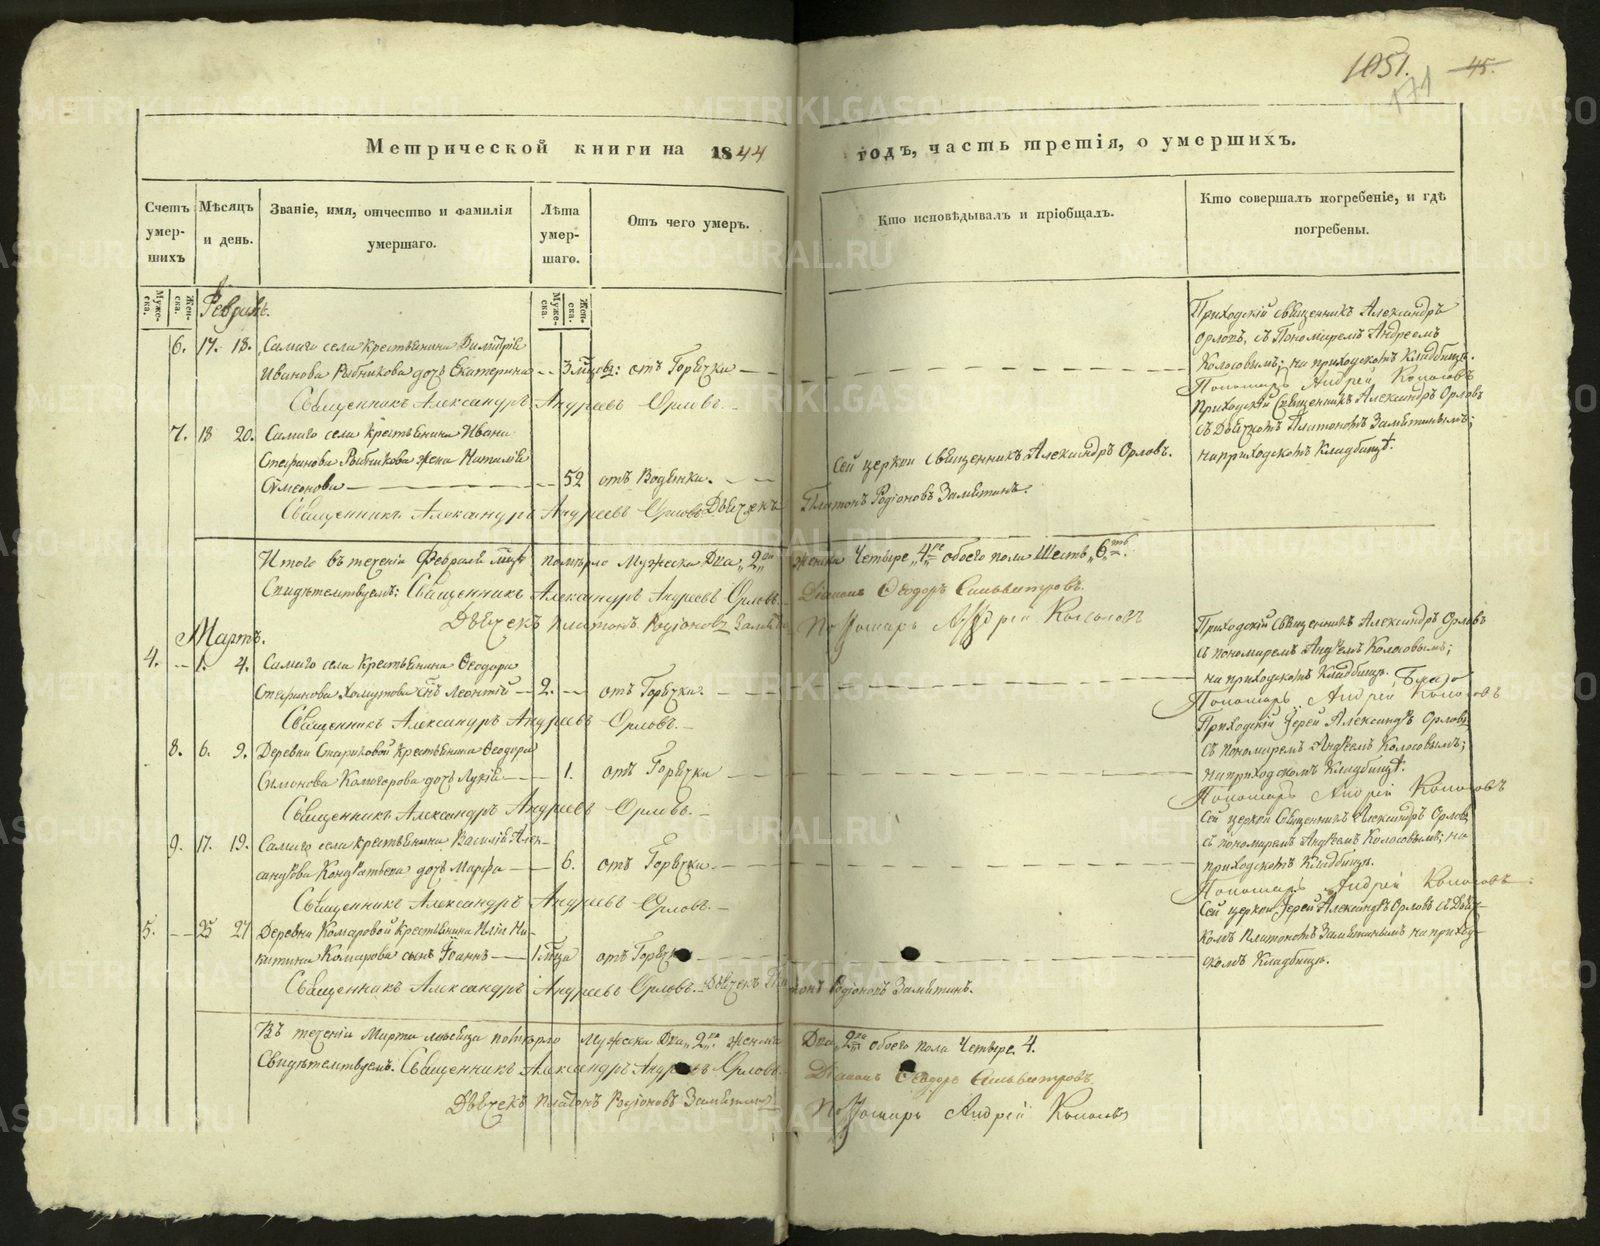 1051.
171
45.
Метрической книги на 1844 годъ, часть третія, о умершихъ.
Счетъ умер-шихъ
Мѣсяцъ и день.
Званіе, имя, отчество и фамилія умершаго.
Лѣта умер-шаго.
Отъ чего умеръ.
Кто исповѣдывалъ и пріобщалъ.
Кто совершалъ погребеніе, и гдѣ погребены.
Муже-ска.
Жен-ска.
Муже-ска.
Жен-ска.
6. 17. 18. Самаго села крестьянина Димитрія
Иванова Рыбникова дочь Екатерина 3 мѣсяц: отъ Горячки
Священникъ Александръ Андреевъ Орловъ.
Приходскій священникъ Александръ
Орловъ, съ Пономаремъ Андреемъ
Колосовымъ; на приходскомъ Кладбищѣ.
Пономарь Андрей Колосовъ
7. 18 20. Самаго села крестьянина Ивана
Стефанова Рыбникова жена Наталія
Симеонова 52 отъ Водянки.
Священникъ Александръ Андреевъ Орловъ Дьячекъ
Сей церкви священникъ Александръ Орловъ.
Платонъ Родіоновъ Замятинъ.
Приходскій Священникъ Александръ Орловъ
съ Дьячкомъ Платономъ Замятинымъ;
на приходскомъ Кладбищѣ.
Итого въ теченіи Февраля мѣсяца померло Мужеска Два „2„ женска Четыре „4„ обоего пола Шесть „6„.
Свидѣтельствуемъ: Священникъ Александръ Андреевъ Орловъ.
Діаконъ Ѳеодоръ Сильвестровъ.
Дьячекъ Платонъ Родіоновъ
Пономарь Андрей Колосовъ
Мартъ.
4. 1. 4. Самаго села Крестьянина Ѳеодора
Стефанова Хомутова сынъ Леонтій 2. отъ Горячки.
Священникъ Александръ Андреевъ Орловъ.
Приходскій священникъ Александръ Орловъ
съ пономаремъ Андреемъ Колосовымъ;
на приходскомъ Кладбищѣ.
Пономарь Андрей Колосовъ
8. 6. 9. Деревни Стариковой крестьянина Ѳеодора
Симонова Комогорова дочь Лукія 1. отъ Горячки
Священникъ Александръ Андреевъ Орловъ.
Приходскій Іерей Александръ Орловъ
съ пономаремъ Андреемъ Колосовымъ;
на приходскомъ Кладбищѣ.
Пономарь Андрей Колосовъ
9. 17. 19. Самаго села крестьянина Василія Алек-
сандрова Кондратьева дочь Марфа 6. отъ Горячки.
Священникъ Александръ Андреевъ Орловъ.
Сей церкви Священникъ Александръ Орловъ
съ пономаремъ Андреемъ Колосовымъ; на
приходскомъ Кладбищѣ.
Пономарь Андрей Колосовъ.
5. 25 27 Деревни Комаровой Крестьянина Иліи Ни-
китина Комарова сынъ Іоаннъ 1 мѣсяца отъ Горячки
Священникъ Александръ Андреевъ Орловъ. Дьячекъ Платонъ Родіоновъ Замятинъ.
Сей церкви Іерей Александръ Орловъ съ Дьяч-
комъ Платономъ Замятинымъ на приход-
скомъ Кладбищѣ.
Въ теченіи Марта мѣсяца померло Мужеска Два „2„ женска Два „2„ обоего пола Четыре 4.
Свидѣтельствуемъ. Священникъ Александръ Андреевъ Орловъ.
Діаконъ Ѳеодоръ Сильвестровъ.
Дьячекъ Платонъ Родіоновъ Замятинъ.
Пономарь Андрей Колосовъ
METRIKI.GASO-URAL.RU